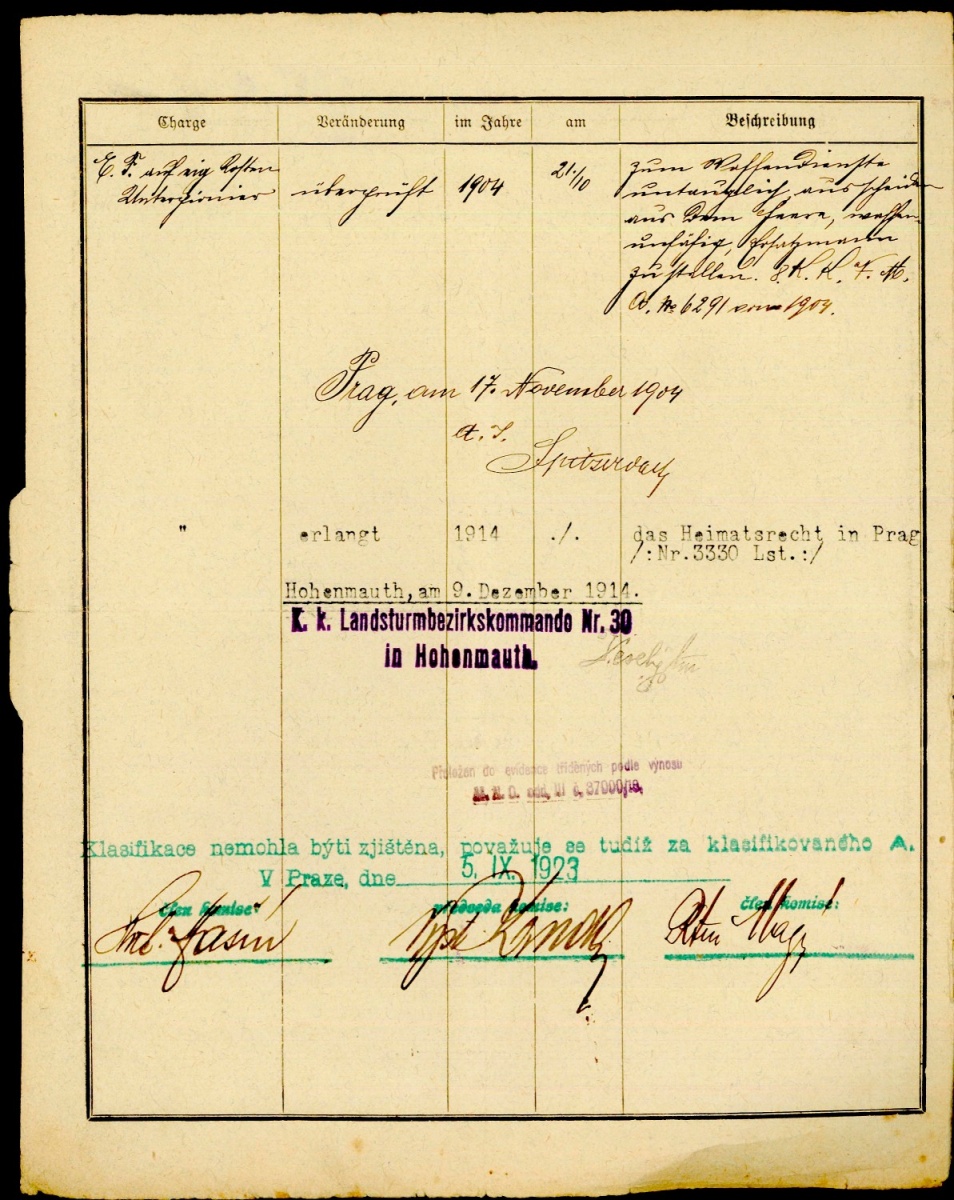 Charge Veränderung im Jahre am Beschreibung
E. F. auf eig Kosten
Unterpionier überprüft 1904 21./10
zum Waffendienste
untauglich, ausscheiden
aus dem Heere, waffen-
unfähig, Ersatzmann
zu stellen.
№ 6291 vom 1904.
Prag, am 17. November 1904
" erlangt 1914 ./. das Heimatsrecht in Prag
/:Nr.3330 Lst.:/
Hohenmauth, am 9. Dezember 1914.
K. k. Landsturmbezirkskommando Nr. 30
in Hohenmauth.
Přeložen do evidence tříděných podle výnosu
M. N. O. odd, VI č, 37000/19,
Klasifikace nemohla býti zjištěna, považuje se tudíž za klasifikovaného A.
V Praze, dne 5. IX. 1923
člen komise: předseda komise: člen komise: